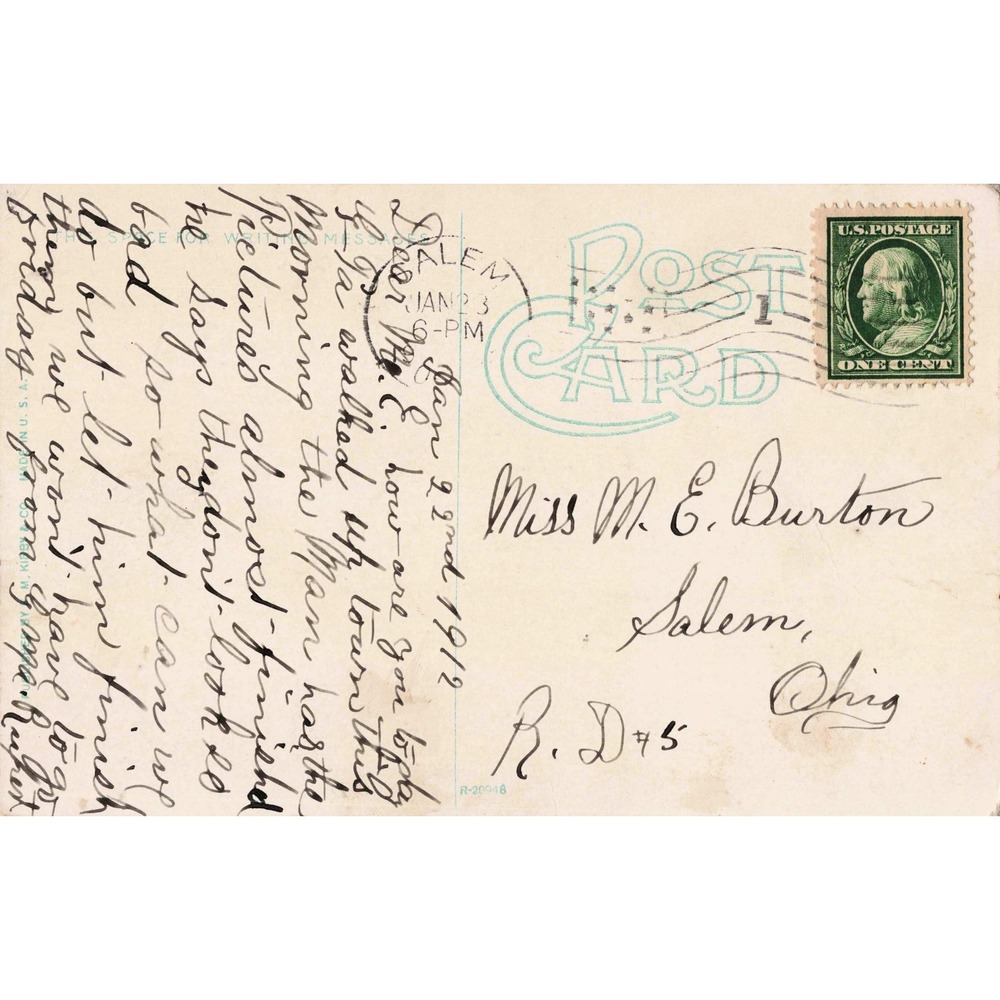 THIS SPACE FOR WRITING MESSAGES
Jan 22nd 1912
Dear M. E. how are you to day
walked up town this
Morning the Man has the
pictures almost finished
he says they don't look so
bad so what can we
do but let him finish
them we won't have to go
Friday from
SALEM
JAN 23
6-PM
POST
CARD
1
U.S. POSTAGE
ONE CENT
Miss M. E. Burton
Salem,
Ohio
R. D #5
R-20948